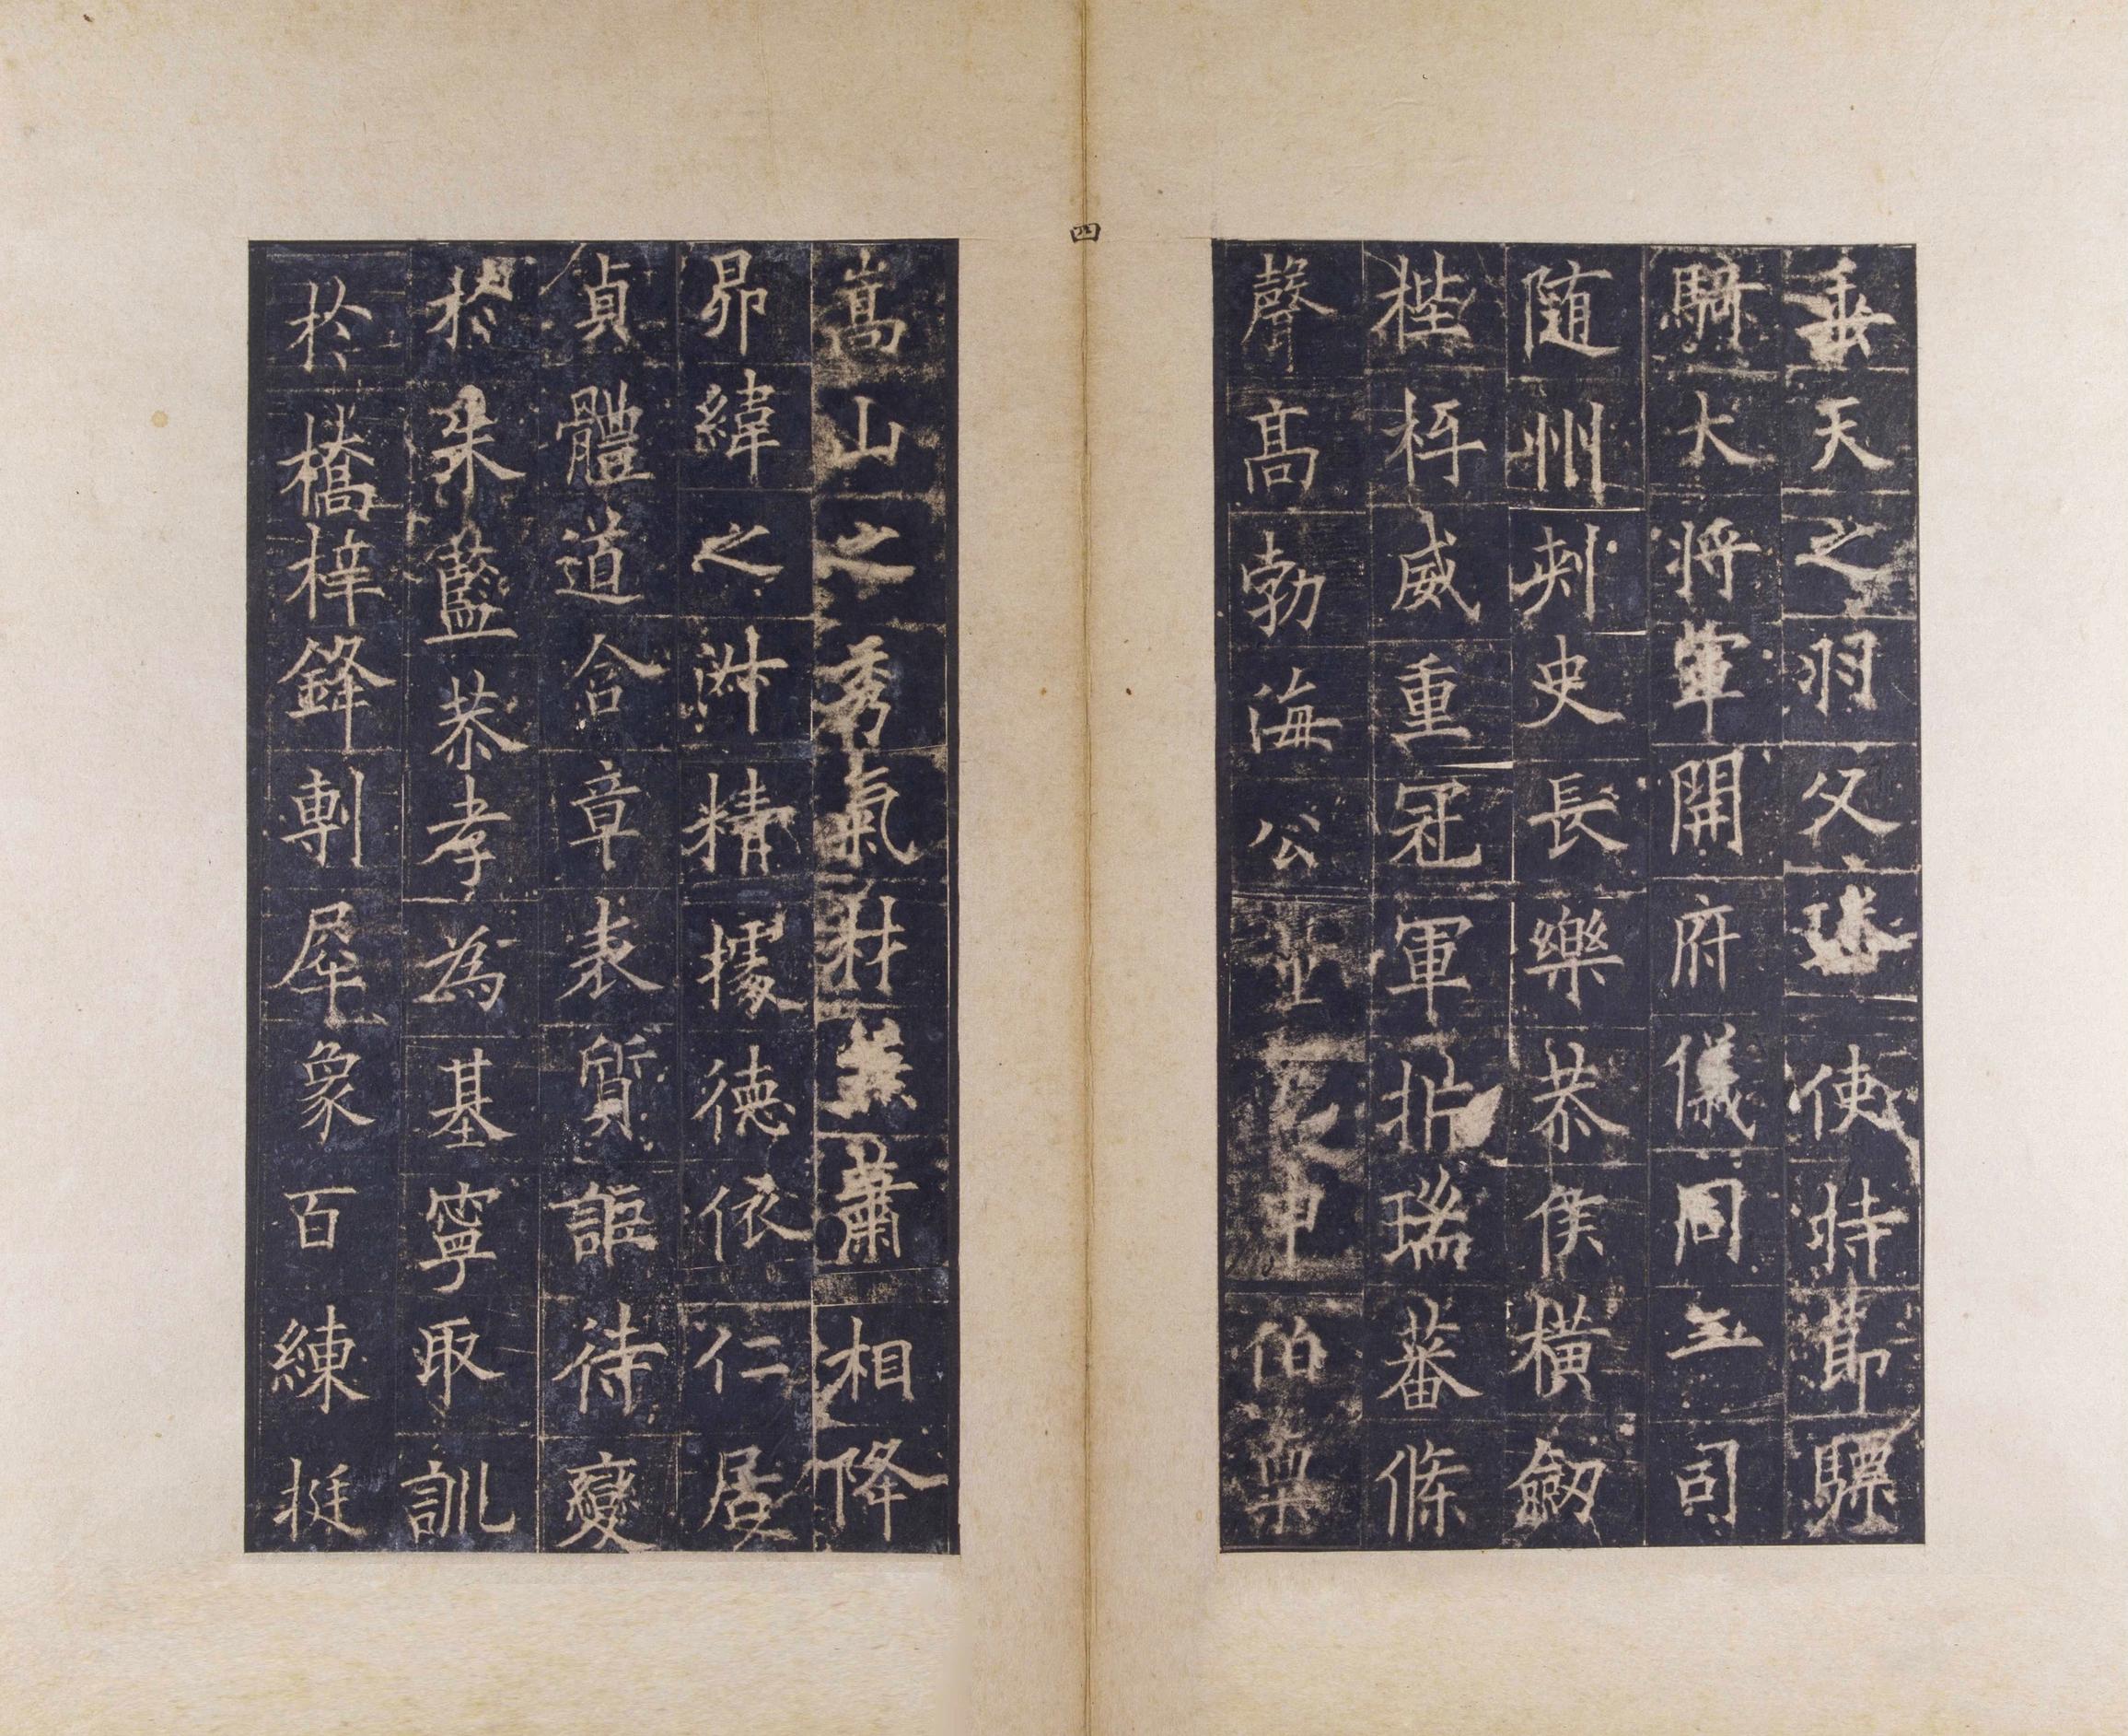 垂天之羽父璠使持節驃
騎大將軍開府儀同三司
随州刾史長樂恭侯橫劔
梐枑威重冠軍析瑞蕃條
聲高勃海公量包申伯稟
四
嵩山之秀氣材兼蕭相降
昴緯之淋精據德依仁居
貞體道含章表質詎待變
於朱藍恭孝為基寧取訓
於橋梓鋒剸犀象百練挺